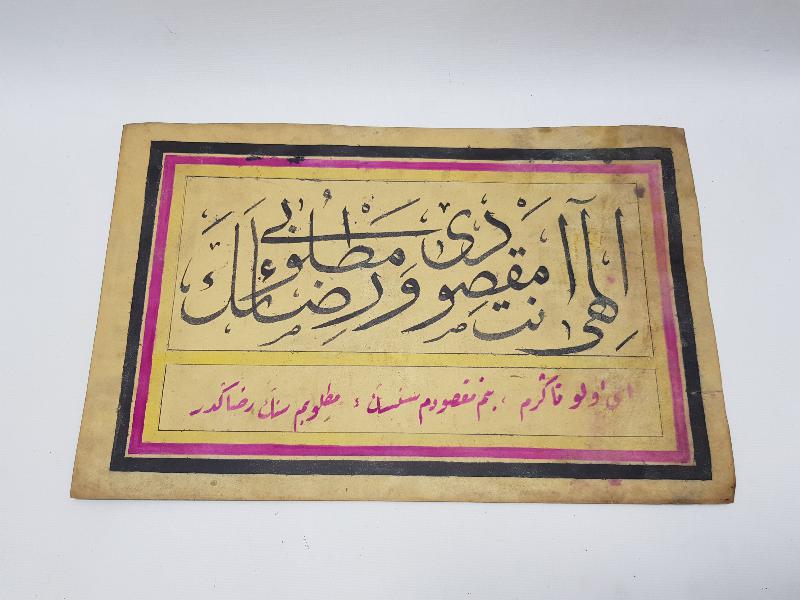 إلهي أنت مقصودي ورضائك مطلوبي
اى اولو تاكرم ، بنم مقصودم سنسك ، مطلوبم سنك رضاكدر